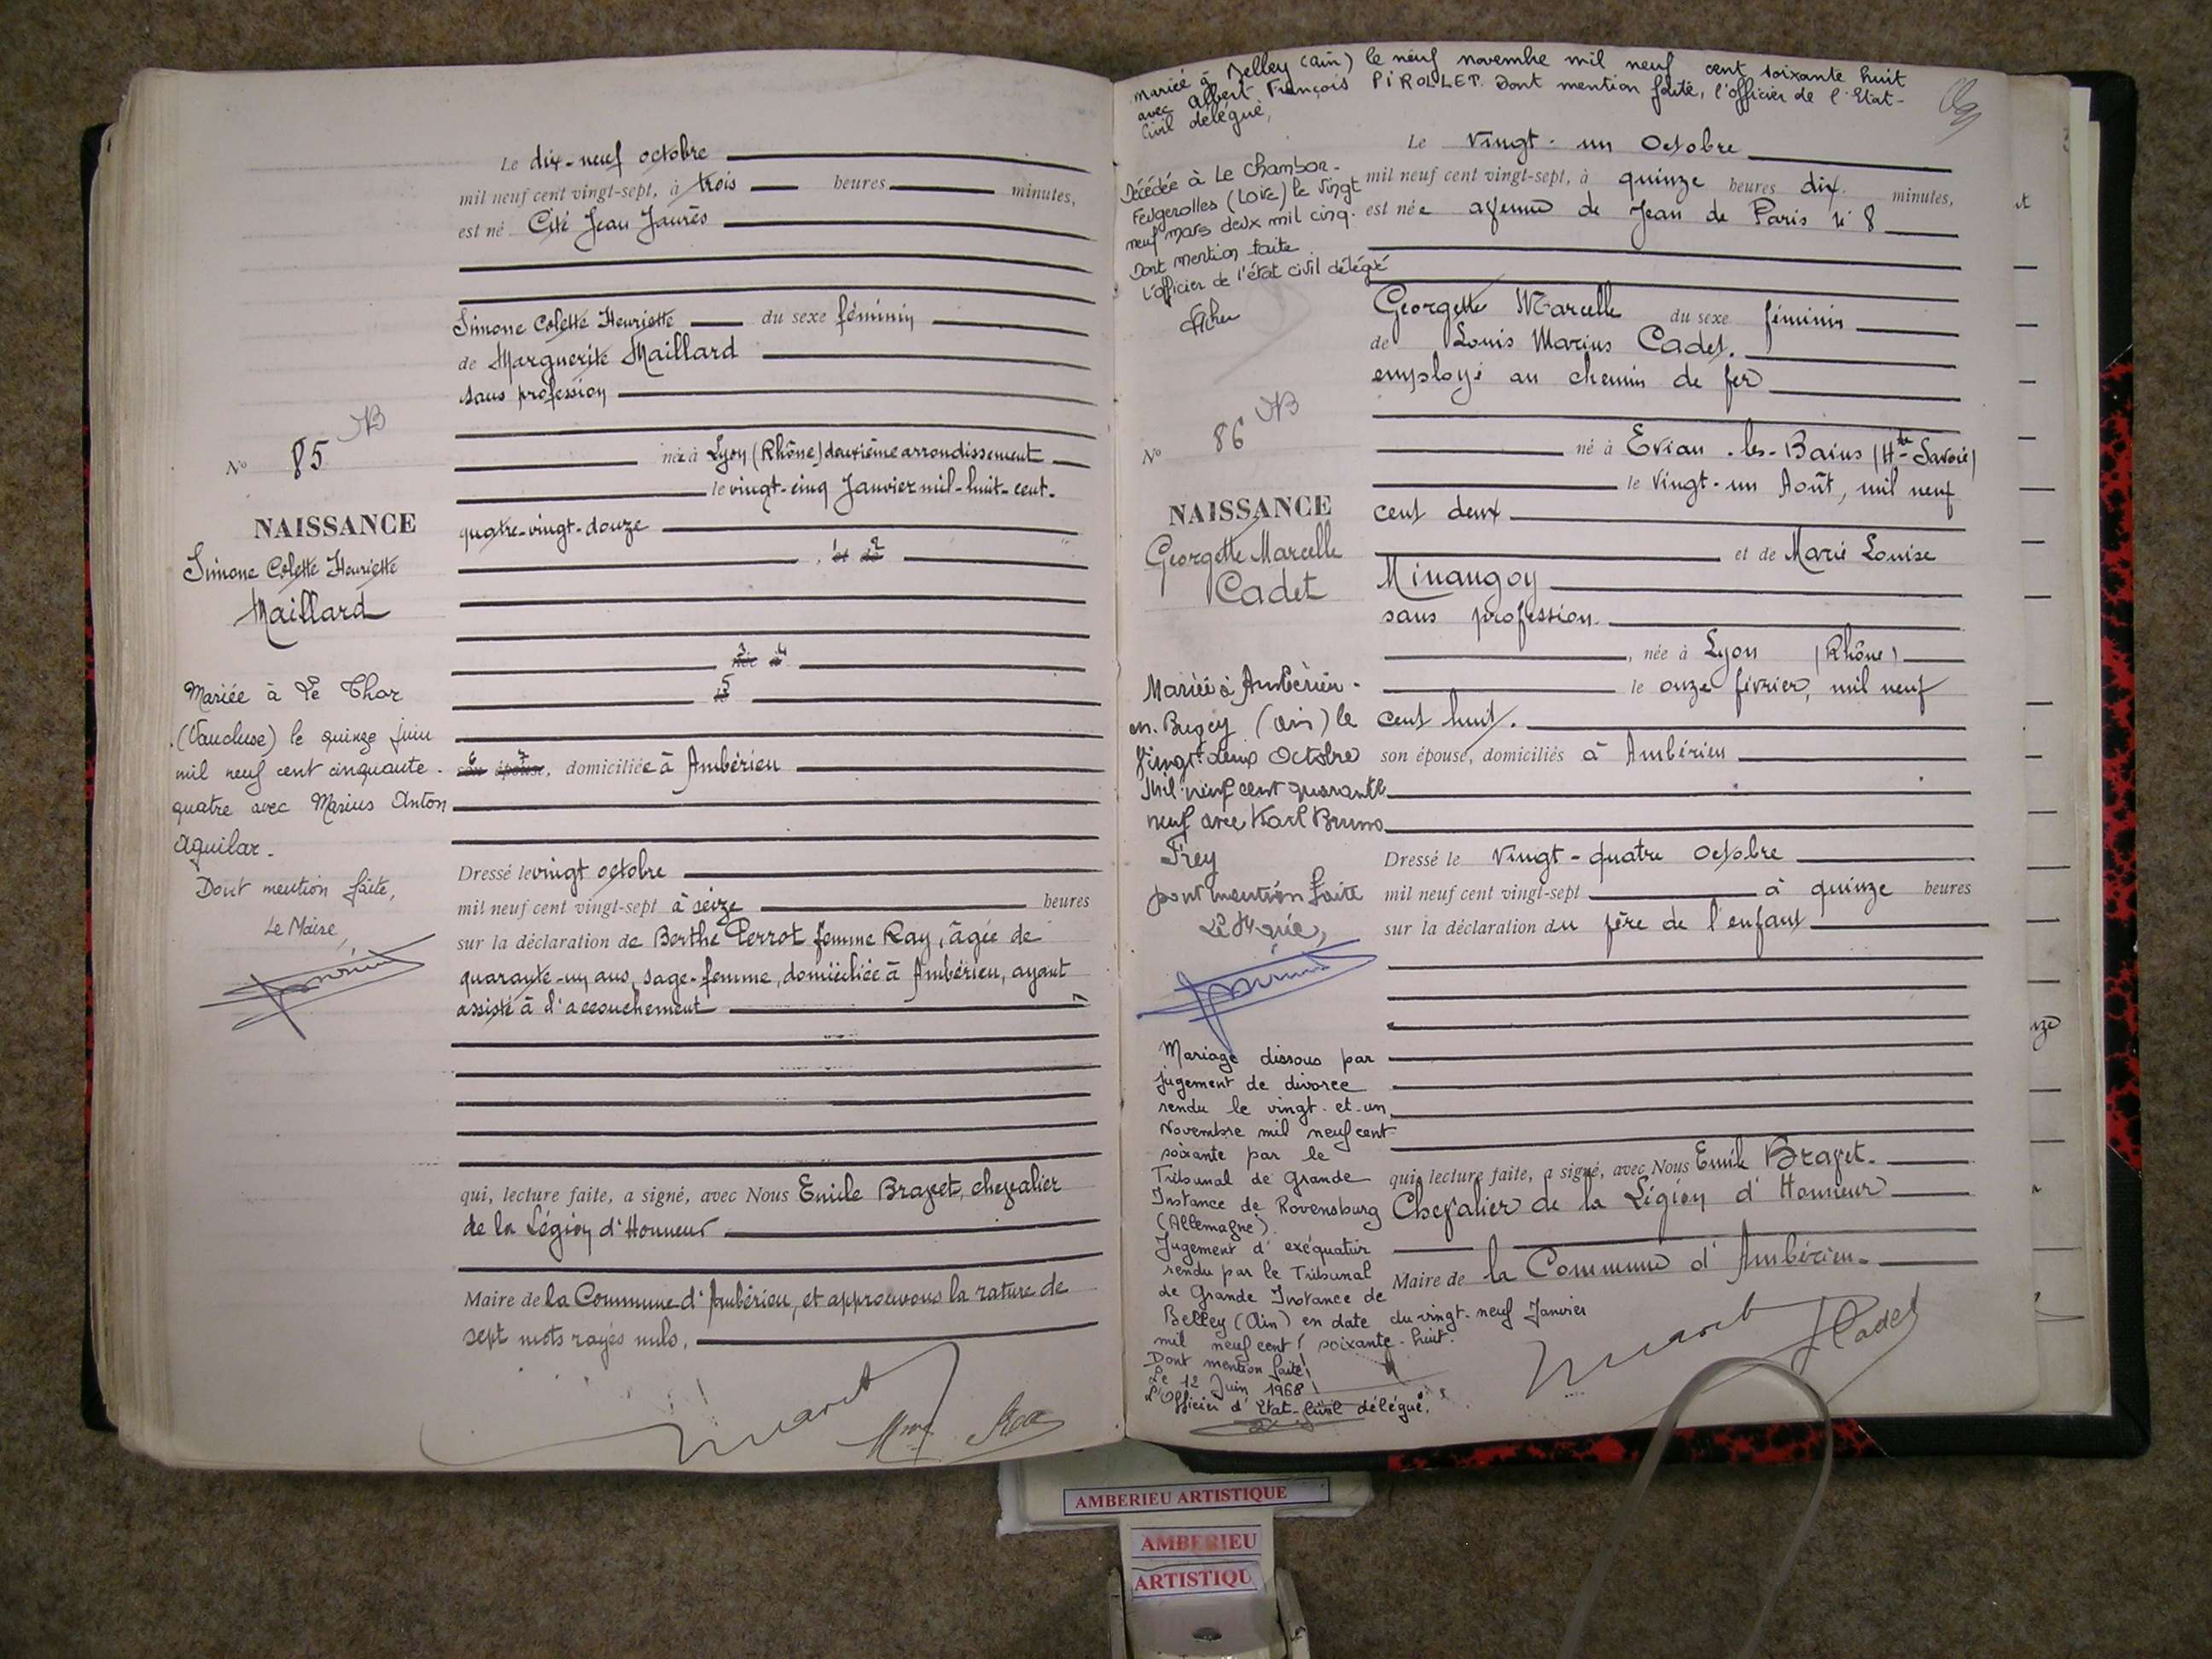 Le dix-neuf octobre
mil neuf cent vingt-sept, à trois heures minutes,
est né Cité Jean Jaurès
Simone Colette Henriette du sexe féminin
de Marguerite Maillard
sans profession
N° 85
née à Lyon (Rhône) deuxième arrondissement
le vingt-cinq Janvier mil-huit-cent-
quatre-vingt-douze
et de
née à
le
son épouse, domiciliée à Ambérieu
Dressé le vingt octobre
mil neuf cent vingt-sept à seize heures
sur la déclaration de Berthe Perrot femme Ray, âgée de
quarante-un ans, sage-femme, domiciliée à Ambérieu, ayant
assisté à l'accouchement
qui, lecture faite, a signé, avec Nous Emile Bravet, chevalier
de la Légion d'Honneur
Maire de la Commune d'Ambérieu, et approuvons la rature de
sept mots rayés nuls.
NAISSANCE
Simone Colette Henriette
Maillard
Mariée à Le Thor
(Vaucluse) le quinze juin
mil neuf cent cinquante-
quatre avec Marius Anton
Aguilar.
Dont mention faite,
Le Maire,
Mme Ray
mariée à Belley (ain) le neuf novembre mil neuf cent soixante huit
avec Albert François PIROLLET. Dont mention faite, l'officier de l'Etat-
Civil délégué,
Décédée à Le Chambon-
Feugerolles (Loire) le vingt
neuf mars deux mil cinq.
Dont mention faite
L'officier de l'état civil délégué
Le Vingt-un Octobre
mil neuf cent vingt-sept, à quinze heures dix minutes,
est née avenue de Jean de Paris n° 8
Georgette Marcelle du sexe féminin
de Louis Marius Cadet.
employé au chemin de fer
N° 86
né à Evian-les-Bains (Hte-Savoie)
le Vingt-un Août, mil neuf
cent deux
et de Marie Louise
Minangoy
sans profession.
, née à Lyon (Rhône)
le onze février, mil neuf
cent huit.
son épouse, domiciliés à Ambérieu
Dressé le Vingt-quatre Octobre
mil neuf cent vingt-sept à quinze heures
sur la déclaration du père de l'enfant
qui, lecture faite, a signé, avec Nous Emile Bravet.
Chevalier de la Légion d'Honneur
Maire de la Commune d'Ambérieu.
NAISSANCE
Georgette Marcelle
Cadet
Mariée à Ambérieu-
en-Bugey (ain) le
Vingt-deux Octobre
Mil neuf cent quarante
neuf avec Karl Bruno
Frey
Dont mention faite
Le Maire,
Mariage dissous par
jugement de divorce
rendu le vingt-et-un
Novembre mil neuf cent
soixante par le
Tribunal de Grande
Instance de Ravensburg
(Allemagne).
Jugement d'exéquatur
rendu par le Tribunal
de Grande Instance de
Belley (Ain) en date du vingt-neuf Janvier
mil neuf cent soixante-huit.
Dont mention faite,
Le 12 Juin 1968
L'Officier d'Etat-Civil délégué.
Cadet
AMBERIEU ARTISTIQUE
AMBERIEU
ARTISTIQU